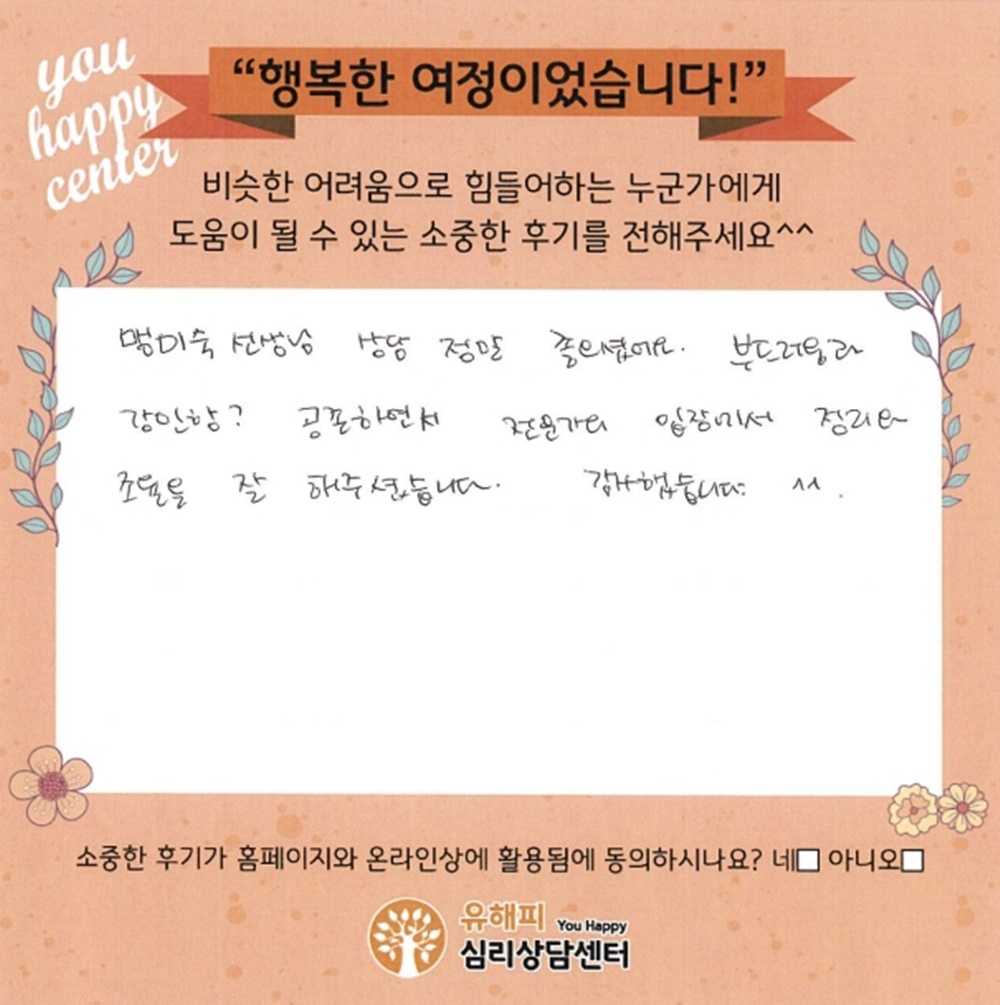 you
happy
center
“행복한 여정이었습니다!”
비슷한 어려움으로 힘들어하는 누군가에게
도움이 될 수 있는 소중한 후기를 전해주세요^^
맹미숙 선생님 상담 정말 좋으셨어요. 부드러움과
강인함? 공존하면서 전문가의 입장에서 정리와
조율을 잘 해주셨습니다. 감사했습니다. ^^.
소중한 후기가 홈페이지와 온라인상에 활용됨에 동의하시나요? 네□ 아니오□
유해피 You Happy
심리상담센터